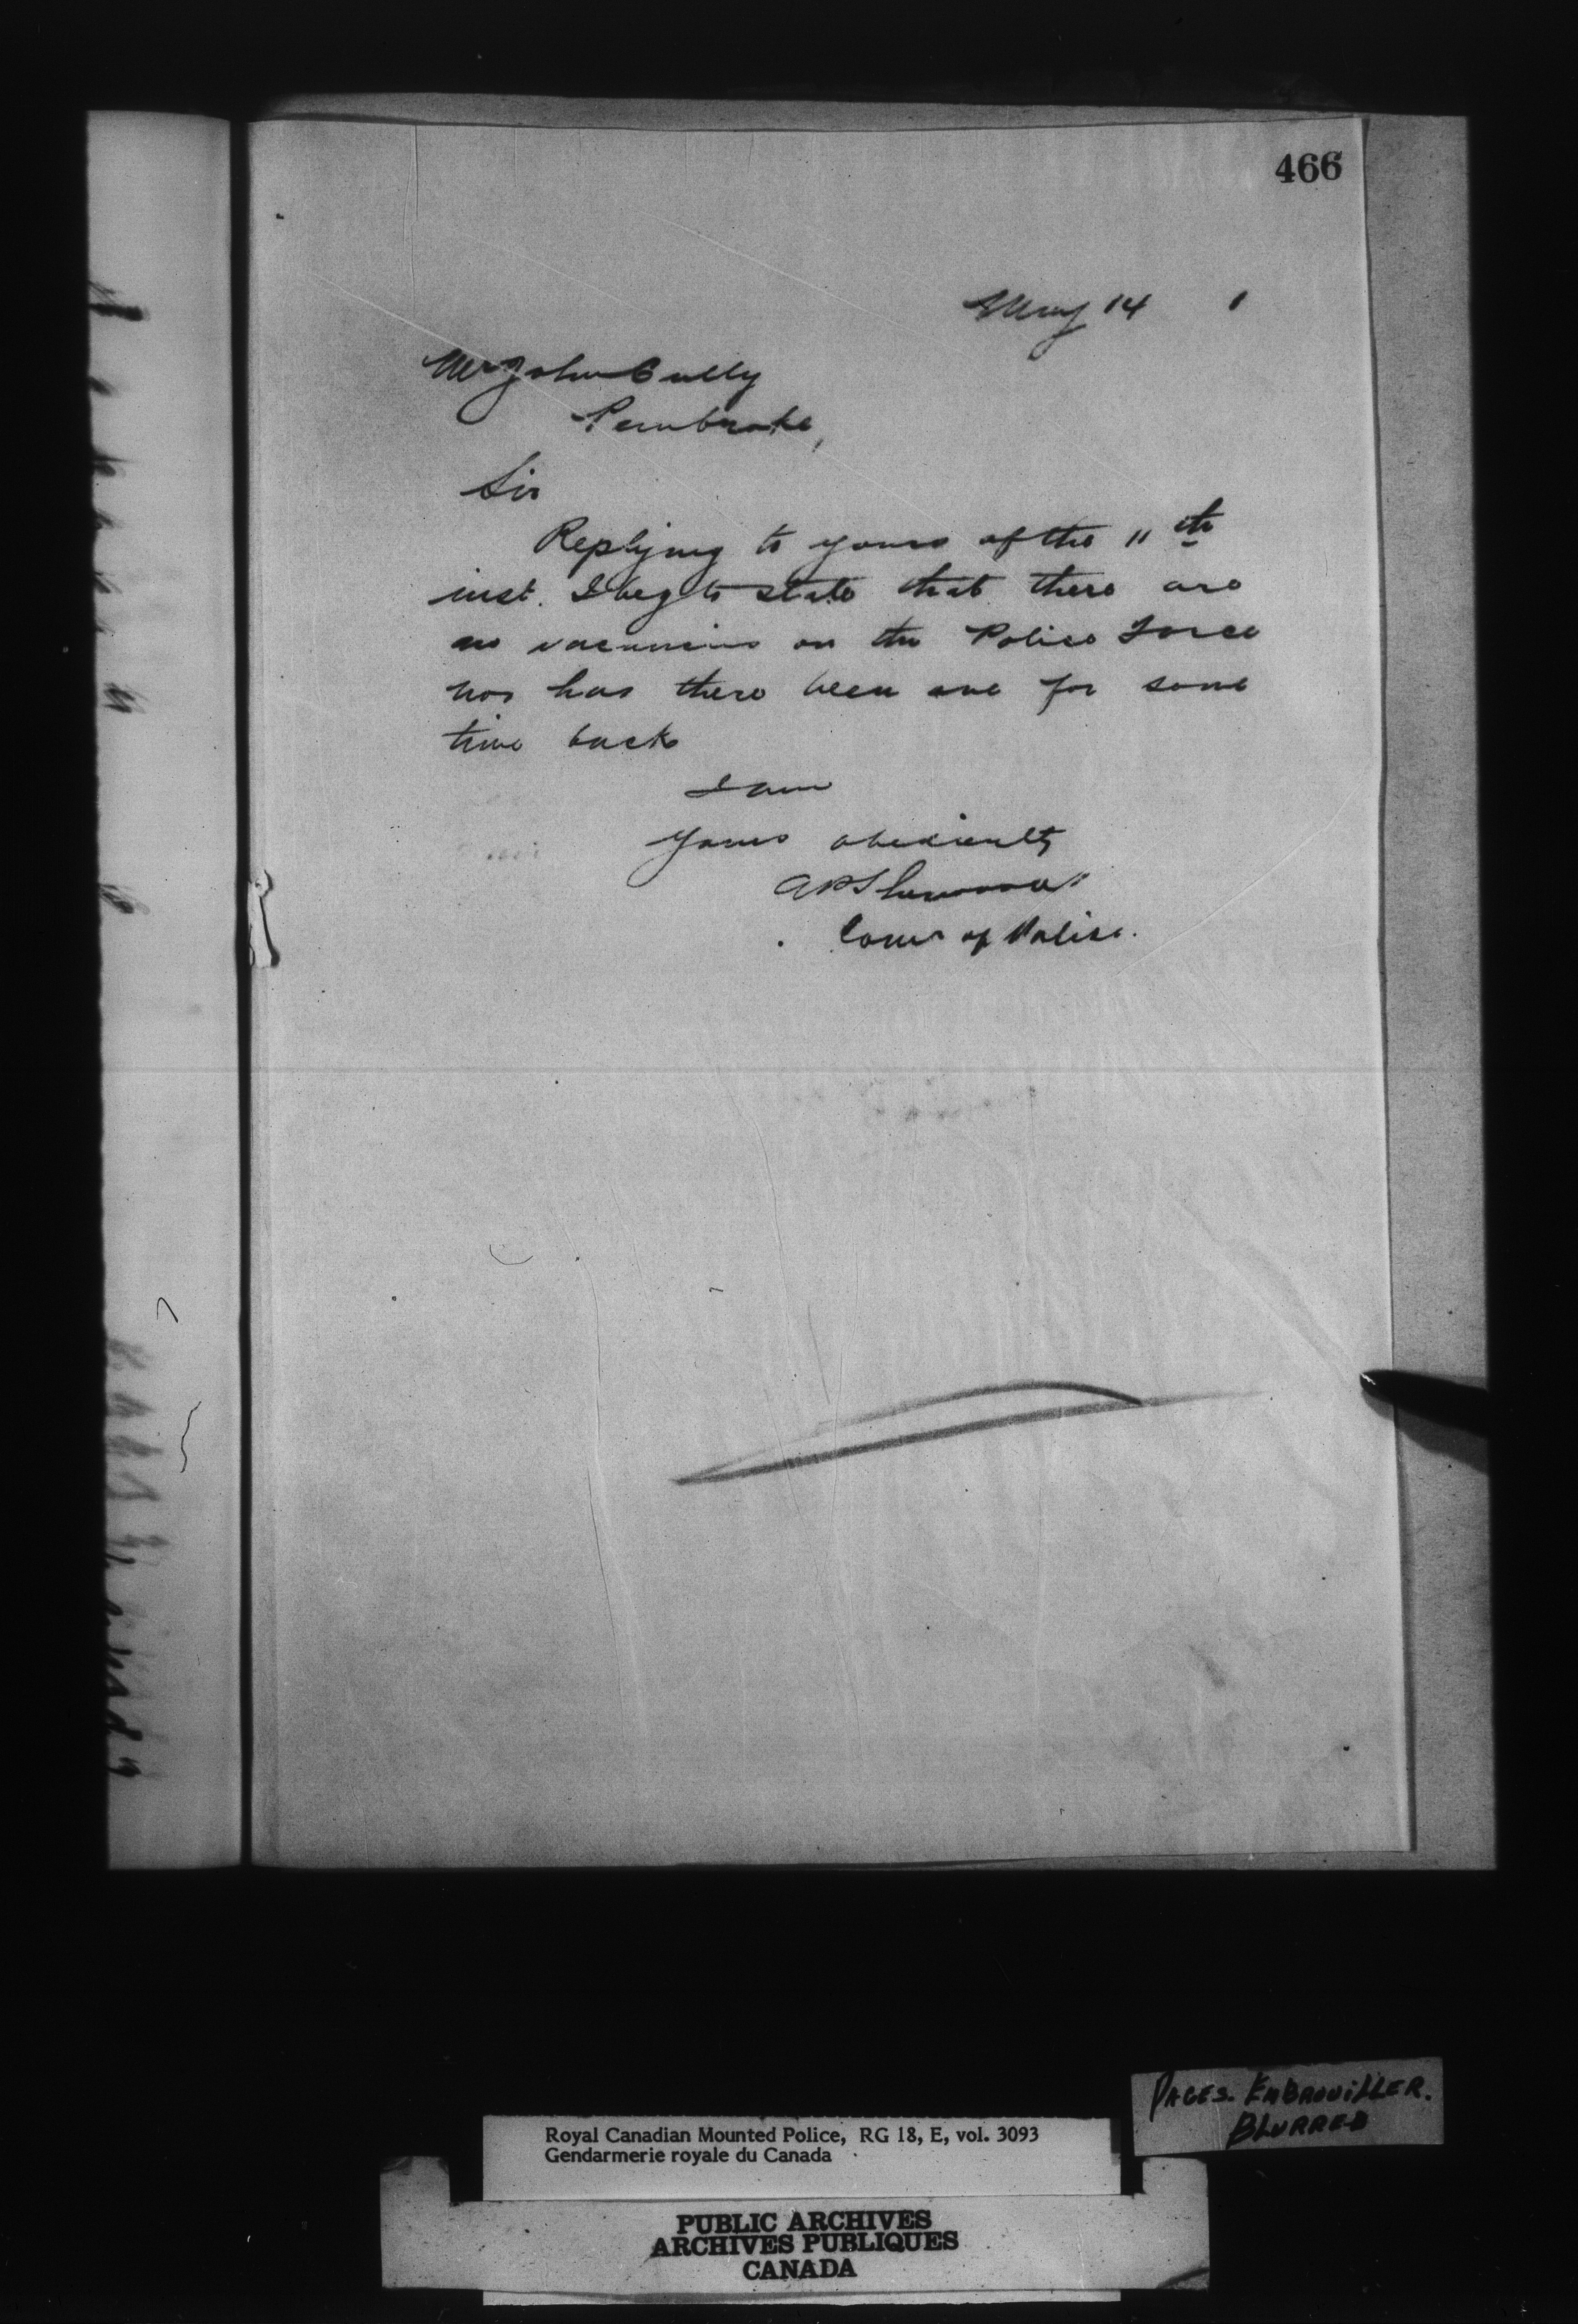 466
May 14 1
Mr John Cully
Pembroke,
Sir
Replying to yours of the 11th
inst. I beg to state that there are
no vacancies on the Police Force
nor has there been one for some
time back
I am
Yours obediently
A P Sherwood
Comr of Police.
PAGES. EMBROUILLER.
BLURRED
Royal Canadian Mounted Police, RG 18, E, vol. 3093
Gendarmerie royale du Canada
PUBLIC ARCHIVES
ARCHIVES PUBLIQUES
CANADA